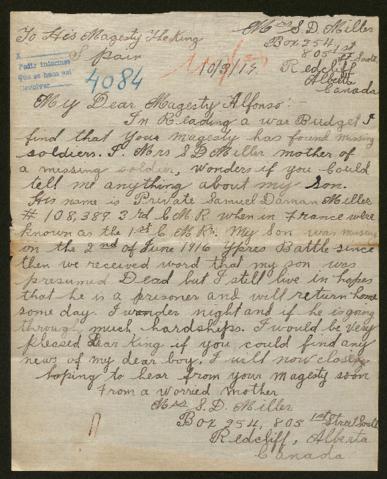 Mrs S.D. Miller
To His Magesty The King
Box 254
Spain
805 1st St South
Redcliff
Alberta
Canada
Pedir informes
que se haran
4084
10/3/17
My Dear Magesty Alfonso:
In Reading a war Budget I
find that your magesty has found missing
soldiers. I. Mrs S D Miller mother of
a missing soldier, wonders if you could
tell me anything about my son.
His name is Private Samuel Daman Miller
# 108,387 3rd C M R when in France were
known as the 1st C M Rs. My son was missing
on the 2nd of June 1916 Ypres Battle since
then we received word that my son was
presumed Dead but I still live in hopes
that he is a prisoner and will return home
some day. I wonder night and if he is going
through much hardships. I would be very
pleased Dear King if you could find any
news of my dear boy, I will now close
hoping to hear from your magesty soon
From a worried mother
Mrs S. D. Miller
Box 254, 805 1st Street South
Redcliff, Alberta
Canada